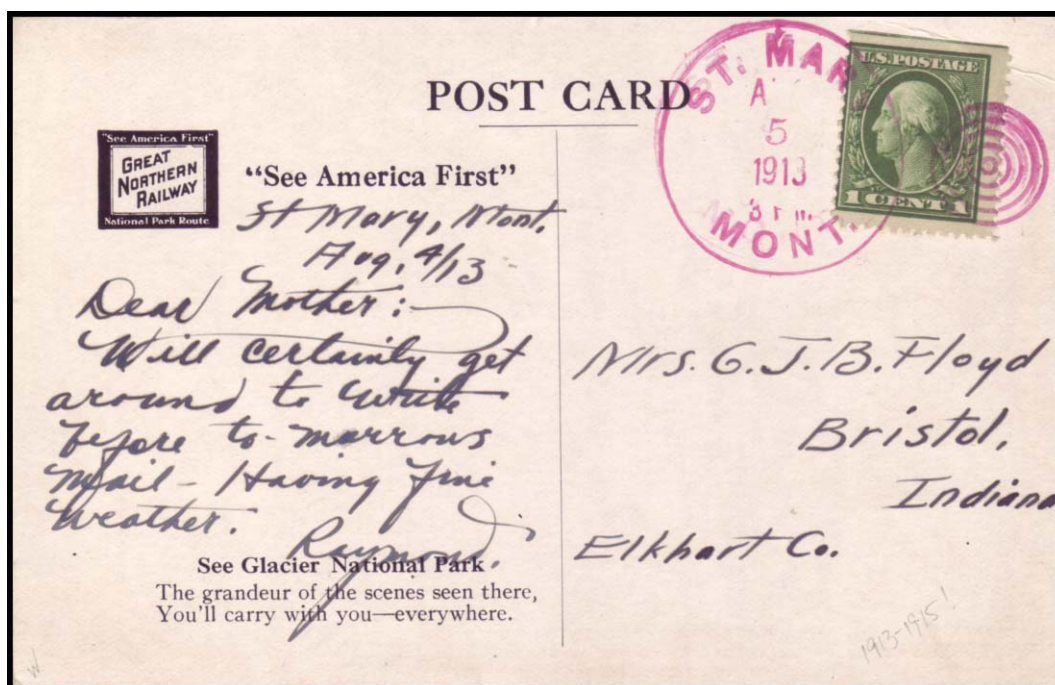 POST CARD
"See America First"
GREAT
NORTHERN
RAILWAY
National Park Route
"See America First"
St Mary, Mont.
Aug. 4/13 -
Dear Mother:
Will certainly get
around to write
before to-morrows
Mail - Having fine
Weather.
Raymond.
See Glacier National Park
The grandeur of the scenes seen there,
You'll carry with you—everywhere.
ST. MAR
A
5
1913
MONT.
U.S. POSTAGE
1 CENT 1
Mrs. G. J. B. Floyd
Bristol,
Indiana
Elkhart Co.
1913-1915!
W